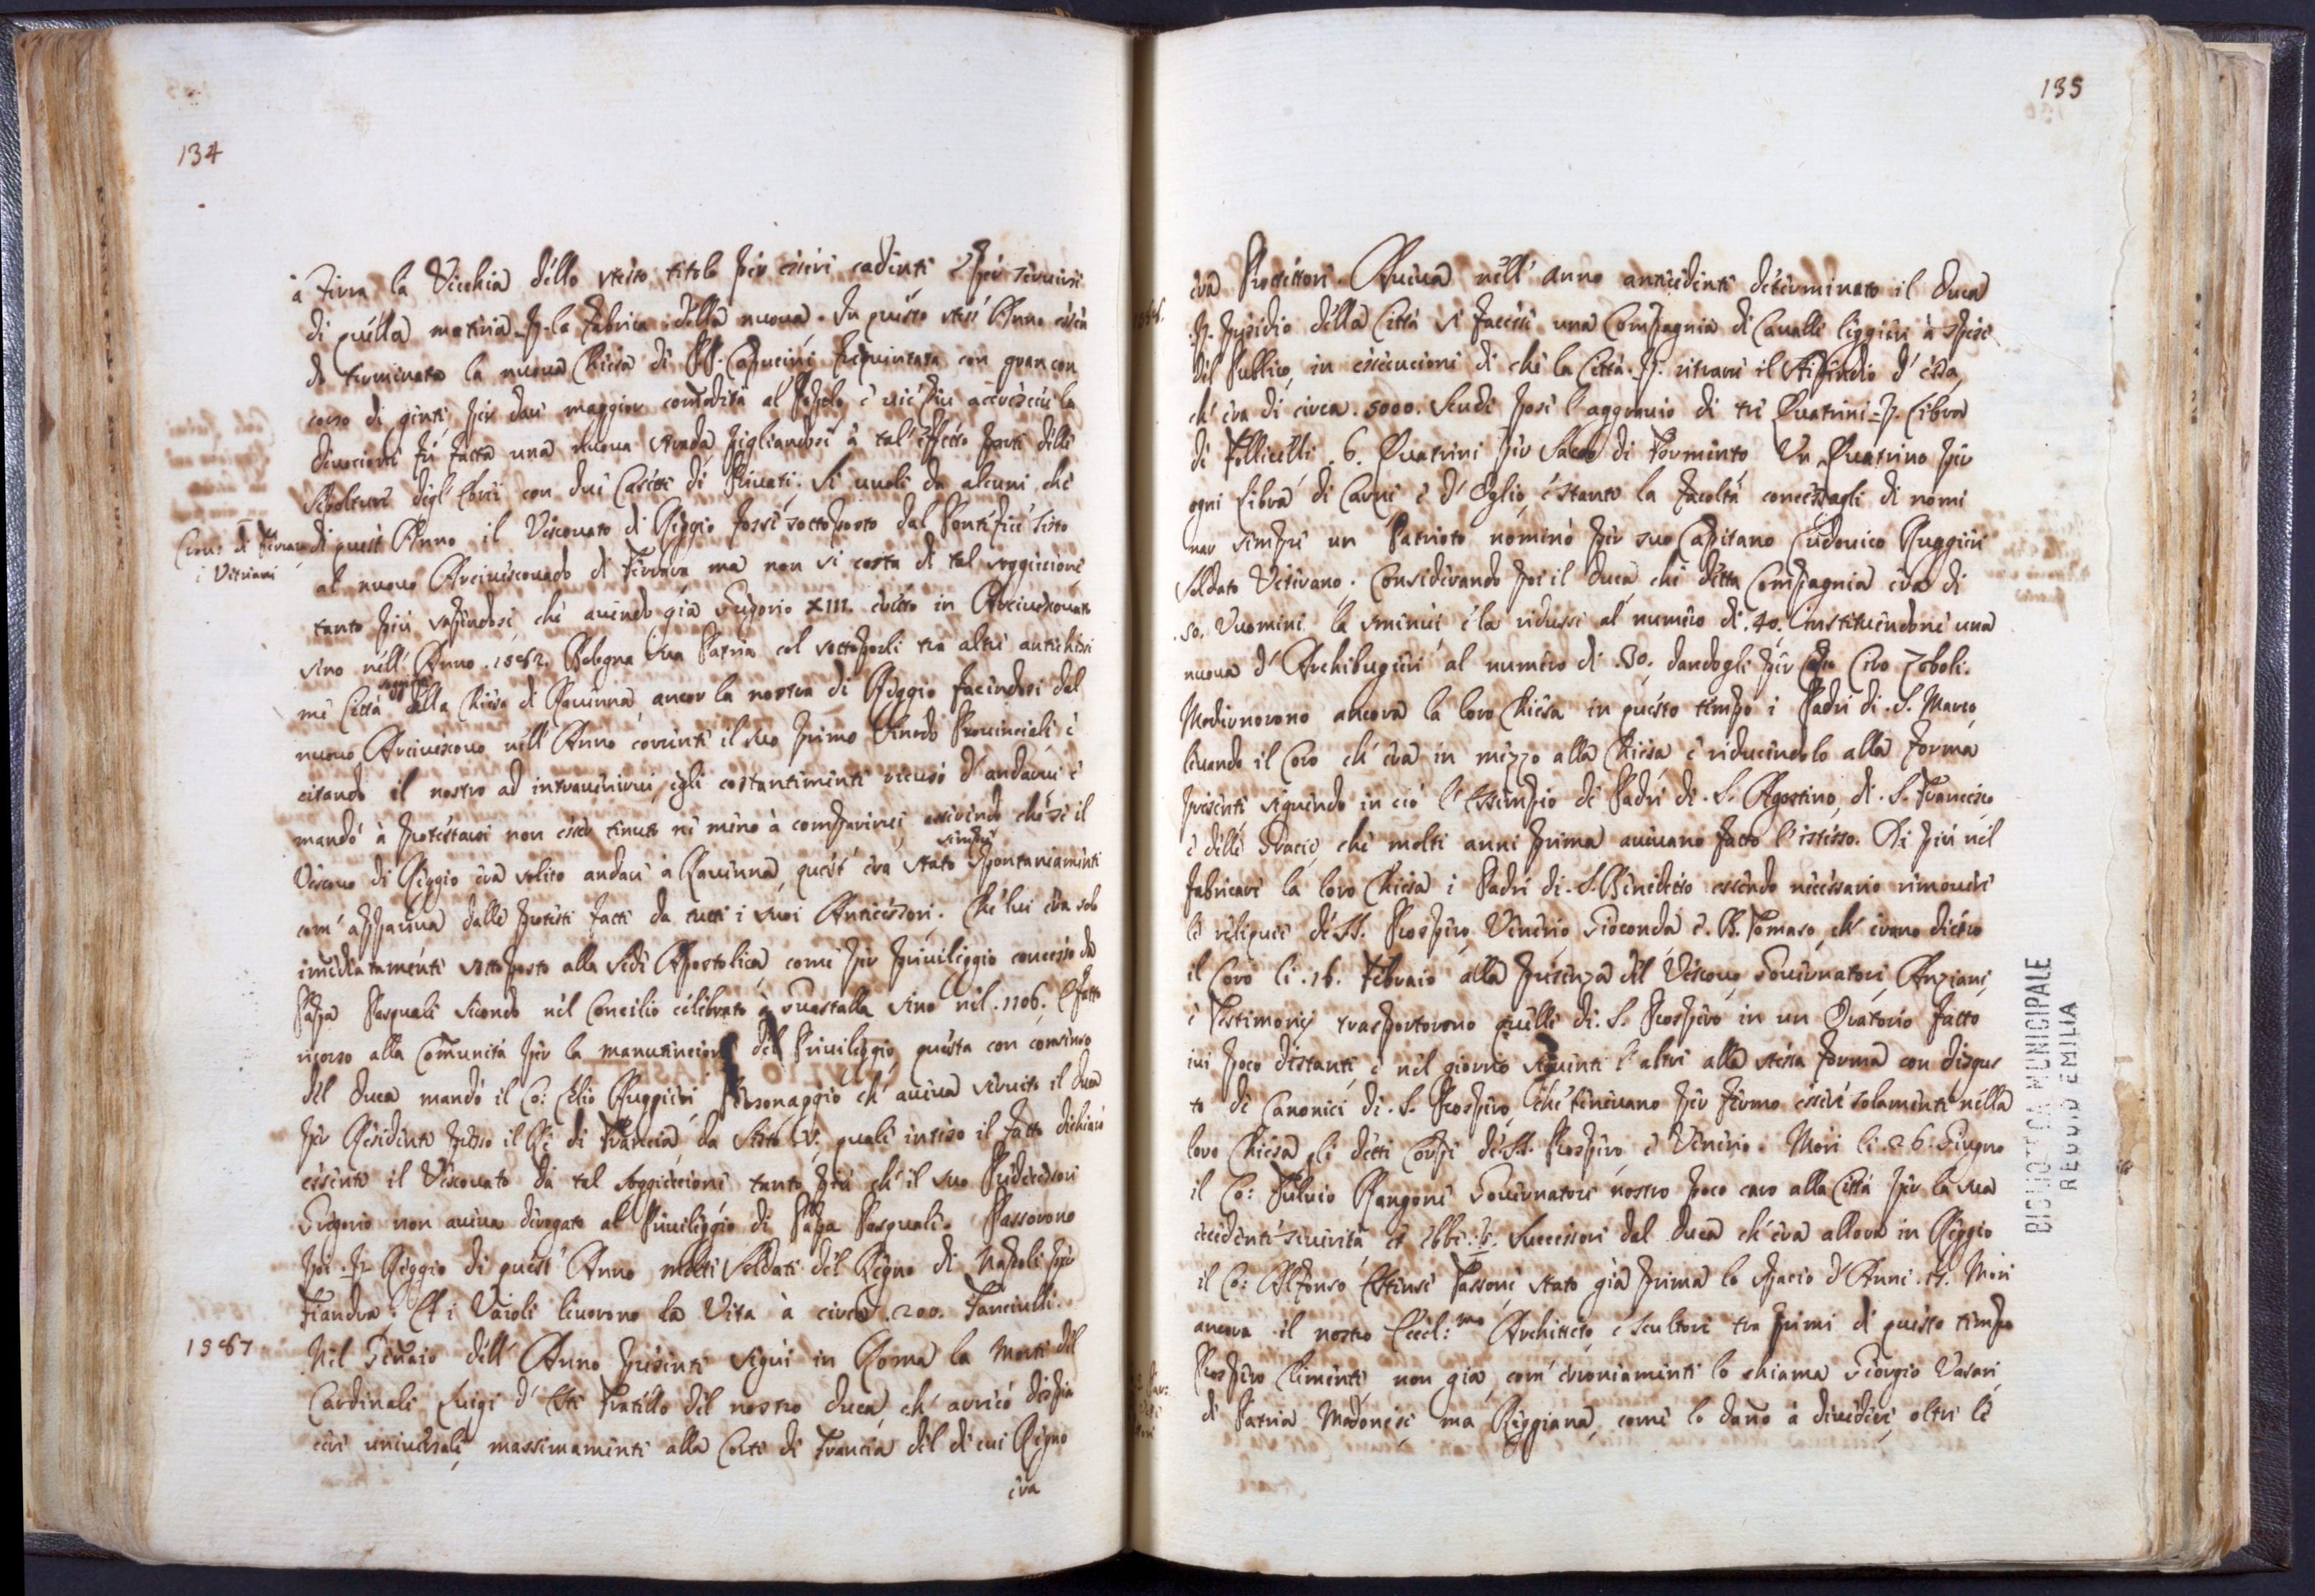 134
à Terra la Vecchia dello stesso titolo per essere cadente e per servirsi
di quella materia p. la fabrica della nuova. In questo stess' Anno essen
do terminata la nuova Chiesa di PP. Capucini frequentata con gran con
corso di gente per dare maggior comodità al Popolo e vie più accrescere la
divocione fu fatta una nuova strada pigliandosi à tal' effetto parte delle
Sepolture degl' Ebrei con due Casette di Privati. Si vuole da alcuni che
di quest' Anno il Vescovato di Reggio fosse sottoposto dal Pontefice Sisto
al nuovo Arcivescovado di Ferrara ma non si costa di tal soggiecione
tanto più sapendosi, che avendo già Gregorio XIII. eretto in Arcivescovato
sino nell' Anno .1582. Bologna sua Patria col sottoporli tra altre antichissi
me Città soggette alla Chiesa di Ravenna, ancor la nostra di Reggio facendosi dal
nuovo Arcivescovo nell' Anno corrente il suo primo Sinodo Provinciale e
citando il nostro ad intravenirvi, egli costantemente recusò d' andarvi e
mandò à protestarsi non esser tenuto ne meno à comparirvi, asserendo che se il
Vescovo di Reggio era solito andare à Ravenna, quest' era stato sempre spontaneamente
com' appariva dalle proteste fatte da tutti i suoi Antecessori. Che lui era solo
imediatamente sottoposto alla Sede Apostolica come per privileggio concesso da
Papa Pasquale secondo nel Concilio celebrato à Guastalla sino nel .1106. E fatto
ricorso alla Comunità per la manutencione del Privileggio, questa con consenso
del Duca mandò il Co: Elio Ruggieri Personaggio ch' aveva servito il Duca
per Residente presso il Re di Francia, da Sisto V. quale inteso il fatto dichiarò
essente il Vescovato da tal soggiecione tanto più ch' il suo Predecessore
Gregorio non aveva derogato al Privileggio di Papa Pasquale. Passorono
poi p. Reggio di quest' Anno molti Soldati del Regno di Napoli per
Fiandra. Et i Vaioli levorono la Vita à circa .200. Fanciulli.
1587
Nel Genaio dell' Anno presente seguì in Roma la Morte del
Cardinale Luigi d' Este Fratello del nostro Duca, ch' arricò dispia
cere universale, massimamente alla Corte di Francia del di cui Regno
era
135
era Protettore. Aveva nell' anno antecedente determinato il Duca
p. presidio della Città si facesse una Compagnia di Cavalli leggieri à spese
del Publico, in essecucione di che la Città p. ritrare il stipendio d' essa,
ch' era di circa .5000. Scudi pose l' aggravio di tre Quatrini p. Libra
di Follicelli .6. Quatrini per Sacco di Formento Un Quatrino per
ogni Libra di Carne e d' Oglio, e stante la facoltà concessagli di nomi
nar sempre un Patrioto nominò per suo Capitano Ludovico Ruggieri
Soldato Veterano. Considerando poi il Duca che detta Compagnia era di
.50. Uomini la sminuì e la ridusse al numero di .40. instituendone una
nuova d' Archibugieri al numero di .30. dandogli per Capo Ciro Zoboli.
Modernorono ancora la loro Chiesa in questo tempo i Padri di .S. Marco,
levando il Coro ch' era in mezzo alla Chiesa e riducendolo alla forma
presente seguendo in ciò l' essempio de Padri di .S. Agostino, di .S. Francesco,
e delle Gracie, che molti anni prima avevano fatto l' istesso. Di più nel
fabricare la loro Chiesa i Padri di .S. Benedetto essendo necessario rimovere
le reliquie de SS. Prospero, Venerio, Gioconda e .B. Tomaso, ch' erano dietro
il Coro li .16. Febraio alla presenza del Vescovo, Governatore, Anziani,
e Testimonij trasportorono quelle di .S. Prospero in un Oratorio fatto
ivi poco distante, e nel giorno seguente l' altre alla stessa forma con disgus
to de Canonici di .S. Prospero, che tenevano per fermo essere solamente nella
loro Chiesa li detti Corpi de SS. Prospero, e Venerio. Morì li .26. Giugno
il Co: Fulvio Rangone Governatore nostro poco caro alla Città per la sua
eccedente severità, et ebbe p. Successore dal Duca ch' era allora in Reggio
il Co: Alfonso Estense Tassone stato già prima lo spacio d' Anni .15. Morì
ancora il nostro Eccel:mo Architetto, e Scultore tra primi di questo tempo
Prospero Clemente, non già, com' erroniamente lo chiama Giorgio Vasari,
di Patria Modonese, ma Reggiana, come lo dano à divedere, oltre le
BIBLIOTECA MUNICIPALE
REGGIO EMILIA